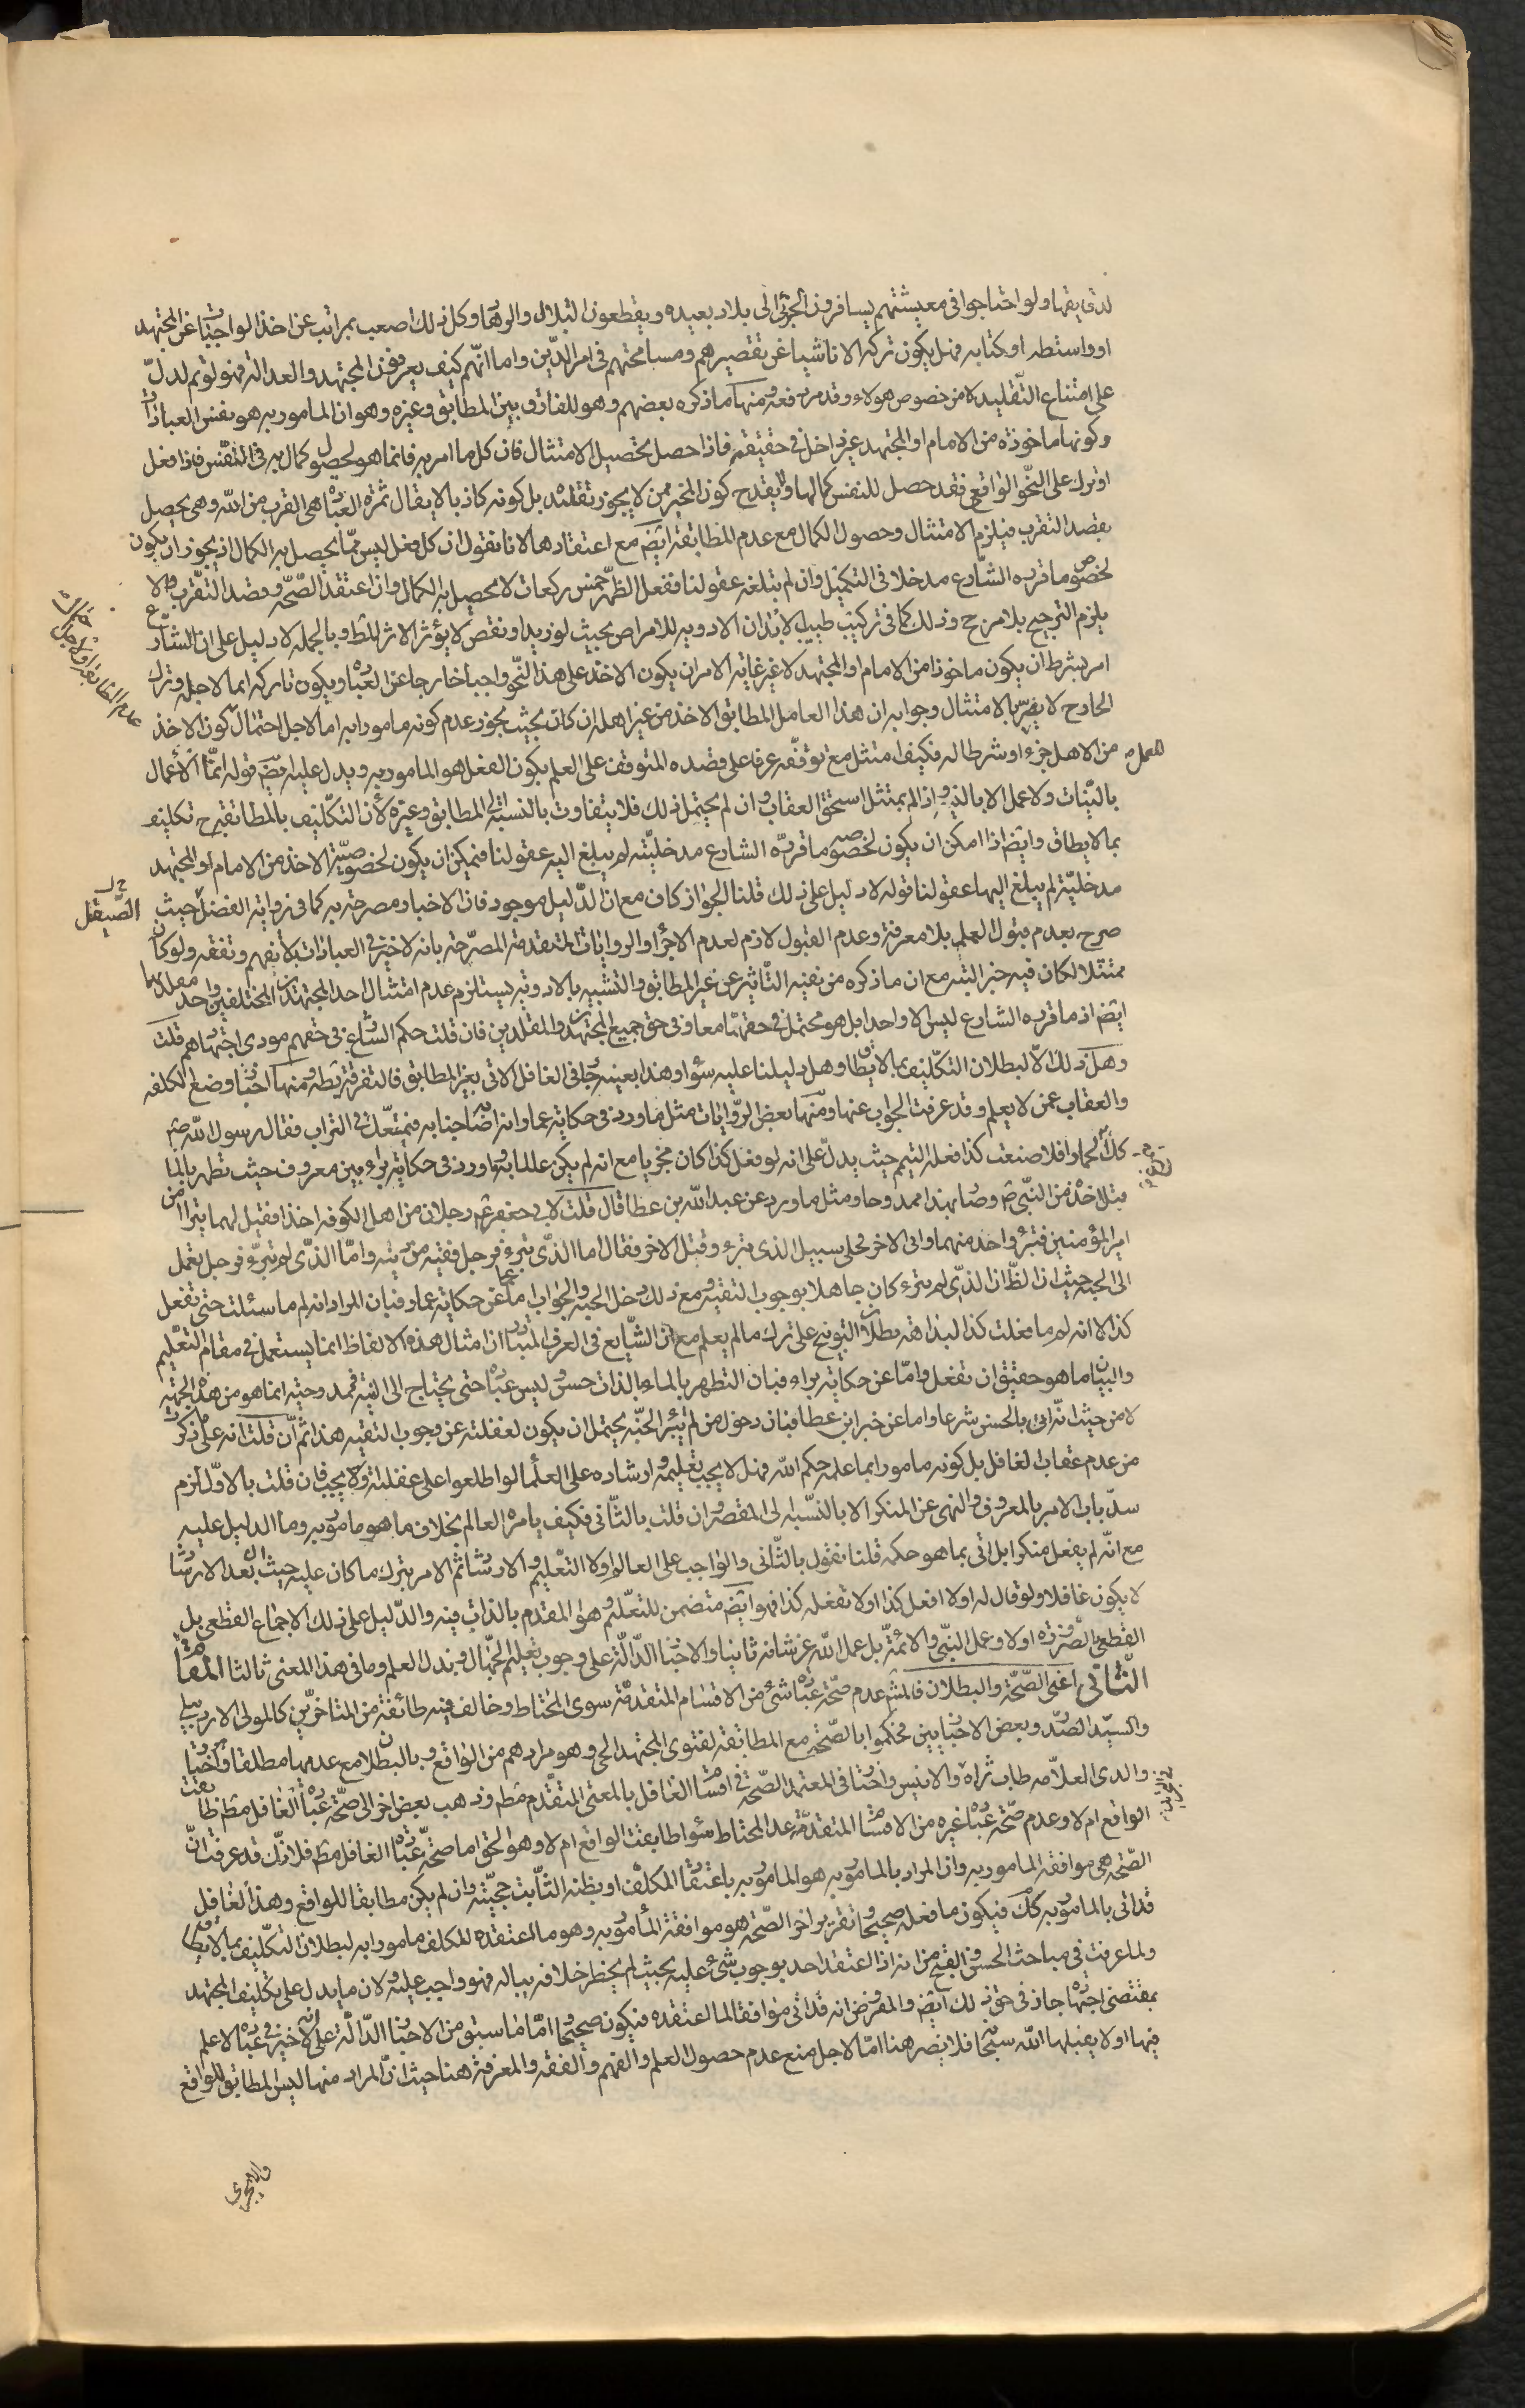 لدقايقها ولو احتاجوا في معيشتهم يسافرون لجزئي الى بلاد بعيده ويقطعون التلال والوهاد وكل ذلك اصعب بمراتب عن اخذ الواجبات عن المجتهد
او واسطه او كتابه فهل يكون تركه الا ناشيا عن تقصيرهم ومسامحتهم في امر الدين واما انهم كيف يعرفون المجتهد والعدالة فهو لو تم لدل
على امتناع التقليد لا من خصوص هولاء وقد مر دفعه ومنها ما ذكره بعضهم وهو للفارق بين المطابق وغيره وهو ان المامور به هو نفس العبادات
وكونها ماخوذه من الامام او المجتهد غير داخل في حقيقته فاذا حصل تحصيل الامتثال فان كل ما امر به فانما هو لحصول كمال به في النفس فاذا فعل
او ترك على النحو الواقع فقد حصل للنفس كمالها ولا يقدح كون المخبر ممن لا يجوز تقليده بل كونه كاذبا لا يقال ثمرة العباده هي القرب من الله وهي يحصل
بقصد التقرب فيلزم الامتثال وحصول الكمال مع عدم المطابقة ايضا مع اعتقادها لانا نقول ان كل فعل ليس مما يحصل به الكمال اذ يجوز ان يكون
لخصوص ما قرره الشارع مدخلا في التكميل وان لم تبلغه عقولنا ففعل الظهر خمس ركعات لا يحصل به الكمال وان اعتقد الصحه وقصد التقرب ولا
يلزم الترجيح بلا مرجح وذلك كما في تركيب طبيب الابدان الادويه للامراض بحيث لو زيد او نقص لا يؤثر الاثر المط وبالجمله لا دليل على ان الشارع
امر بشرط ان يكون ماخوذا من الامام او المجتهد لا غير غايه الامر ان يكون الاخذ على هذا النحو واجبا خارجا عن العباده ويكون تاركه اثما لاجله وترك
الخارج لا يضر بالامتثال وجوابه ان هذا العامل المطابق الاخذ من غير اهله ان كان بحيث يجوز عدم كونه مامورا به اما لاجل احتمال كون الاخذ
للعمل من الاهل جزء او شرطا له فكيف امتثل مع توقفه عرفا على قصده المتوقف على العلم بكون الفعل هو المامور به ويدل عليه ايضا قوله انما الاعمال
بالنيات ولا عمل الا بالنيه واذا لم يمتثل استحق العقاب وان لم يحتمل ذلك فلا يتفاوت بالنسبة الى المطابق وغيره لان التكليف بالمطابقه ح تكليف
بما لا يطاق وايضا اذا امكن ان يكون لخصوص ما قرره الشارع مدخليته لم يبلغ اليه عقولنا فيمكن ان يكون لخصوصية الاخذ من الامام او المجتهد
مدخلية لم يبلغ اليها عقولنا قوله لا دليل على ذلك قلنا الجواز كاف مع ان الدليل موجود فان الاخبار مصرحة به كما في رواية الفضل حيث
الصيقل
صرح بعدم قبول العلم بلا معرفة وعدم القبول لازم لعدم الاجزاء والروايات المتقدمة المصرحة بانه لا خير في العبادات بلا تفهم وتفقه ولو كان
ممتثلا لكان فيه خير البته مع ان ما ذكره من نفيه التاثير عن غير المطابق والتشبيه بالادويه يستلزم عدم امتثال احد المجتهدين المختلفين واحد مقلديهما
ايضا اذ ما قرره الشارع ليس الا واحدا بل هو محتمل في حقهما معا وفي حق جميع المجتهدين والمقلدين فان قلت حكم الشارع في حقهم مودى اجتهادهم قلت
وهل ذلك الا لبطلان التكليف بما لا يطاق وهل دليلنا عليه سواء وهذا بعينه جار في الغافل الاتي بغير المطابق فالتفرقه ومنها اخبار وضع الكلفه
والعقاب عمن لا يعلم وقد عرفت الجواب عنها ومنها بعض الروايات مثل ما ورد في حكاية عمار انه اصابته جنابه فتمعك في التراب فقال رسول الله ص
كذلك الحمار افلا صنعت كذا فعلمه التيمم حيث يدل على انه لو فعل كذا كان مجزيا مع انه لم يكن عالما به وما ورد في حكاية براء بن معروف حيث تطهر بالماء
قبل الاخذ من النبي ص وصار بهذا ممدوحا ومثل ما ورد عن عبد الله بن عطا قال قلت لابي جعفر ع رجلان من اهل الكوفه اخذا فقيل لهما تبراا من
امير المؤمنين فتبرء واحد منهما وابى الاخر فخلى سبيل الذي تبرء وقتل الاخر فقال اما الذي تبرء فرجل فقيه من دينه واما الذي لم تبرء فرجل تعجل
الى الجنه حيث ان الظ ان الذي لم يتبرء كان جاهلا بوجوب التقيه ومع ذلك دخل الجنه والجواب اما عن حكاية عمار فبان المراد انه لم ما سئلت حتى تفعل
كذا لا انه لم ما فعلت كذا لبداهة بطلان التوبيخ على ترك ما لم يعلم مع ان الشايع في العرف المتبادر ان امثال هذه الالفاظ انما يستعمل في مقام التعليم
والبيان ما هو حقيق ان تفعل واما عن حكاية براء فبان التطهر بالماء بالذات حسن ليس عباده حتى يحتاج الى النيه فمدوحيته انما هو من هذه الجهة
لا من حيث انه اتى بالحسن شرعا واما عن خبر ابن عطا فبان دخول من لم يتبر الجنه يحتمل ان يكون لغفلته عن وجوب التقيه هذا ثم ان قلت انه على ما ذكرت
من عدم عقاب الغافل بل كونه مامورا بما علمه حكم الله فهل لا يجب تعليمه وارشاده على العلماء لو اطلعوا على غفلته ولا يجب فان قلت بالاول لزم
سد باب الامر بالمعروف والنهي عن المنكر الا بالنسبة الى المقصر وان قلت بالثاني فكيف يامره العالم بخلاف ما هو مامور به وما الدليل عليه
مع انه لم يفعل منكرا بل اتى بما هو حكمه قلنا نقول بالثاني والواجب على العالم اولا التعليم والارشاد ثم الامر بترك ما كان عليه حيث ان بعد الارشاد
لا يكون غافلا ولو قال له اولا افعل كذا او لا تفعله كذا فهو ايضا متضمن للتعليم وهو المقدم بالذات فيه والدليل على ذلك الاجماع القطعي بل
القطعي الضروره اولا وعمل النبي والائمة بل عمل الله عز شانه ثانيا والاخبار الدالة على وجوب تعليم الجهال وبذل العلم وما في هذا المعنى ثالثا المقام
الثاني اعني الصحة والبطلان فالمش عدم صحة عباده شيء من الاقسام المتقدمة سوى المحتاط وخالف فيه طائفة من المتاخرين كالمولى الاردبيلي
والسيد الصدر وبعض الاخباريين فحكموا بالصحة مع المطابقة لفتوى المجتهد الحي وهو مرادهم من الواقع وبالبطلان مع عدمها مطلقا واختار
والدي العلامه طاب ثراه والانيس واختار في المعتمد الصحة في اقسام الغافل بالمعنى المتقدم مط وذهب بعض اخر الى صحة عباده الغافل مط طابقت
الواقع ام لا وعدم صحة عباده غيره من الاقسام المتقدمة عد المحتاط سواء طابقت الواقع ام لا وهو الحق اما صحة عباده الغافل مط فلانك قد عرفت ان
الصحة هي موافقة المامور به وان المراد بالمامور به هو المامور به باعتقاد المكلف او بظنه الثابت حجيته وان لم يكن مطابقا للواقع وهذا الغافل
قد اتى بالمامور به كك فيكون ما فعله صحيحا وتقرير اخر الصحة هو موافقة المأمور به وهو ما اعتقده المكلف مامورا به لبطلان التكليف بما لا يطاق
ولما عرفت في مباحث الحسن والقبح من انه اذا اعتقد احد بوجوب شيء عليه بحيث لم يخطر خلافه بباله فهو واجب عليه ولان ما يدل على تكليف المجتهد
بمقتضى اجتهاده جار في حق ذلك ايضا والمفروض انه قد اتى موافقا لما اعتقده فيكون صحيحا واما ما سبق من الاخبار الدالة على انه لا خير في عباده لا علم
فيها او لا يقبلها الله سبحانه فلا يضر هنا اما لاجل منع عدم حصول العلم والفهم والفقه والمعرفة هنا حيث ان المراد منها ليس المطابق للواقع